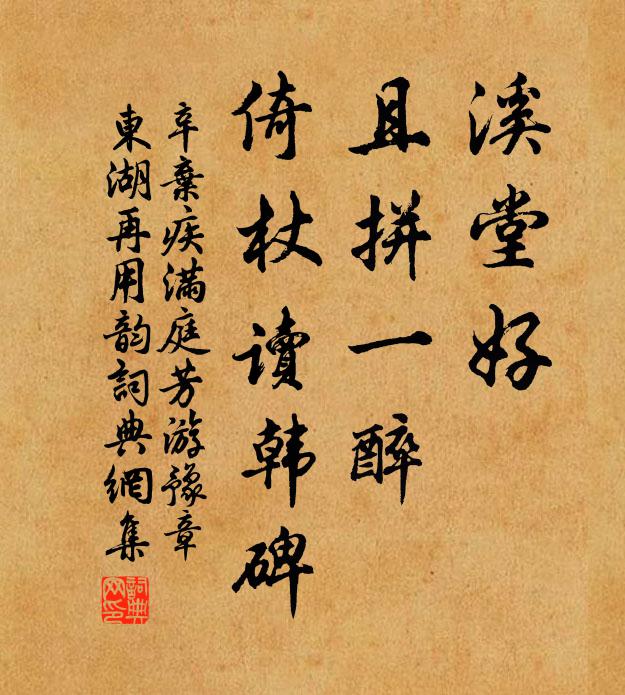 溪堂好
且拼一醉
倚杖读韩碑
辛棄疾满庭芳游豫章
東湖再用韵詞典網集
詞典
网印